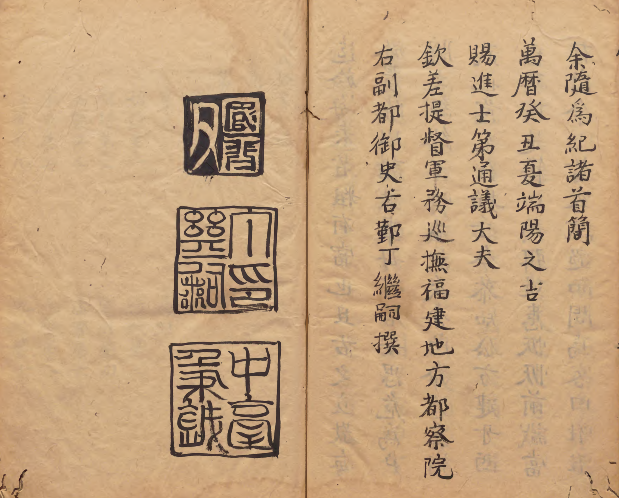 余隨爲紀諸首簡
萬曆癸丑夏端陽之吉
賜進士第通議大夫
欽差提督軍務巡撫福建地方都察院
右副都御史古鄞丁繼嗣撰
丁繼嗣印
中臺秉鉞